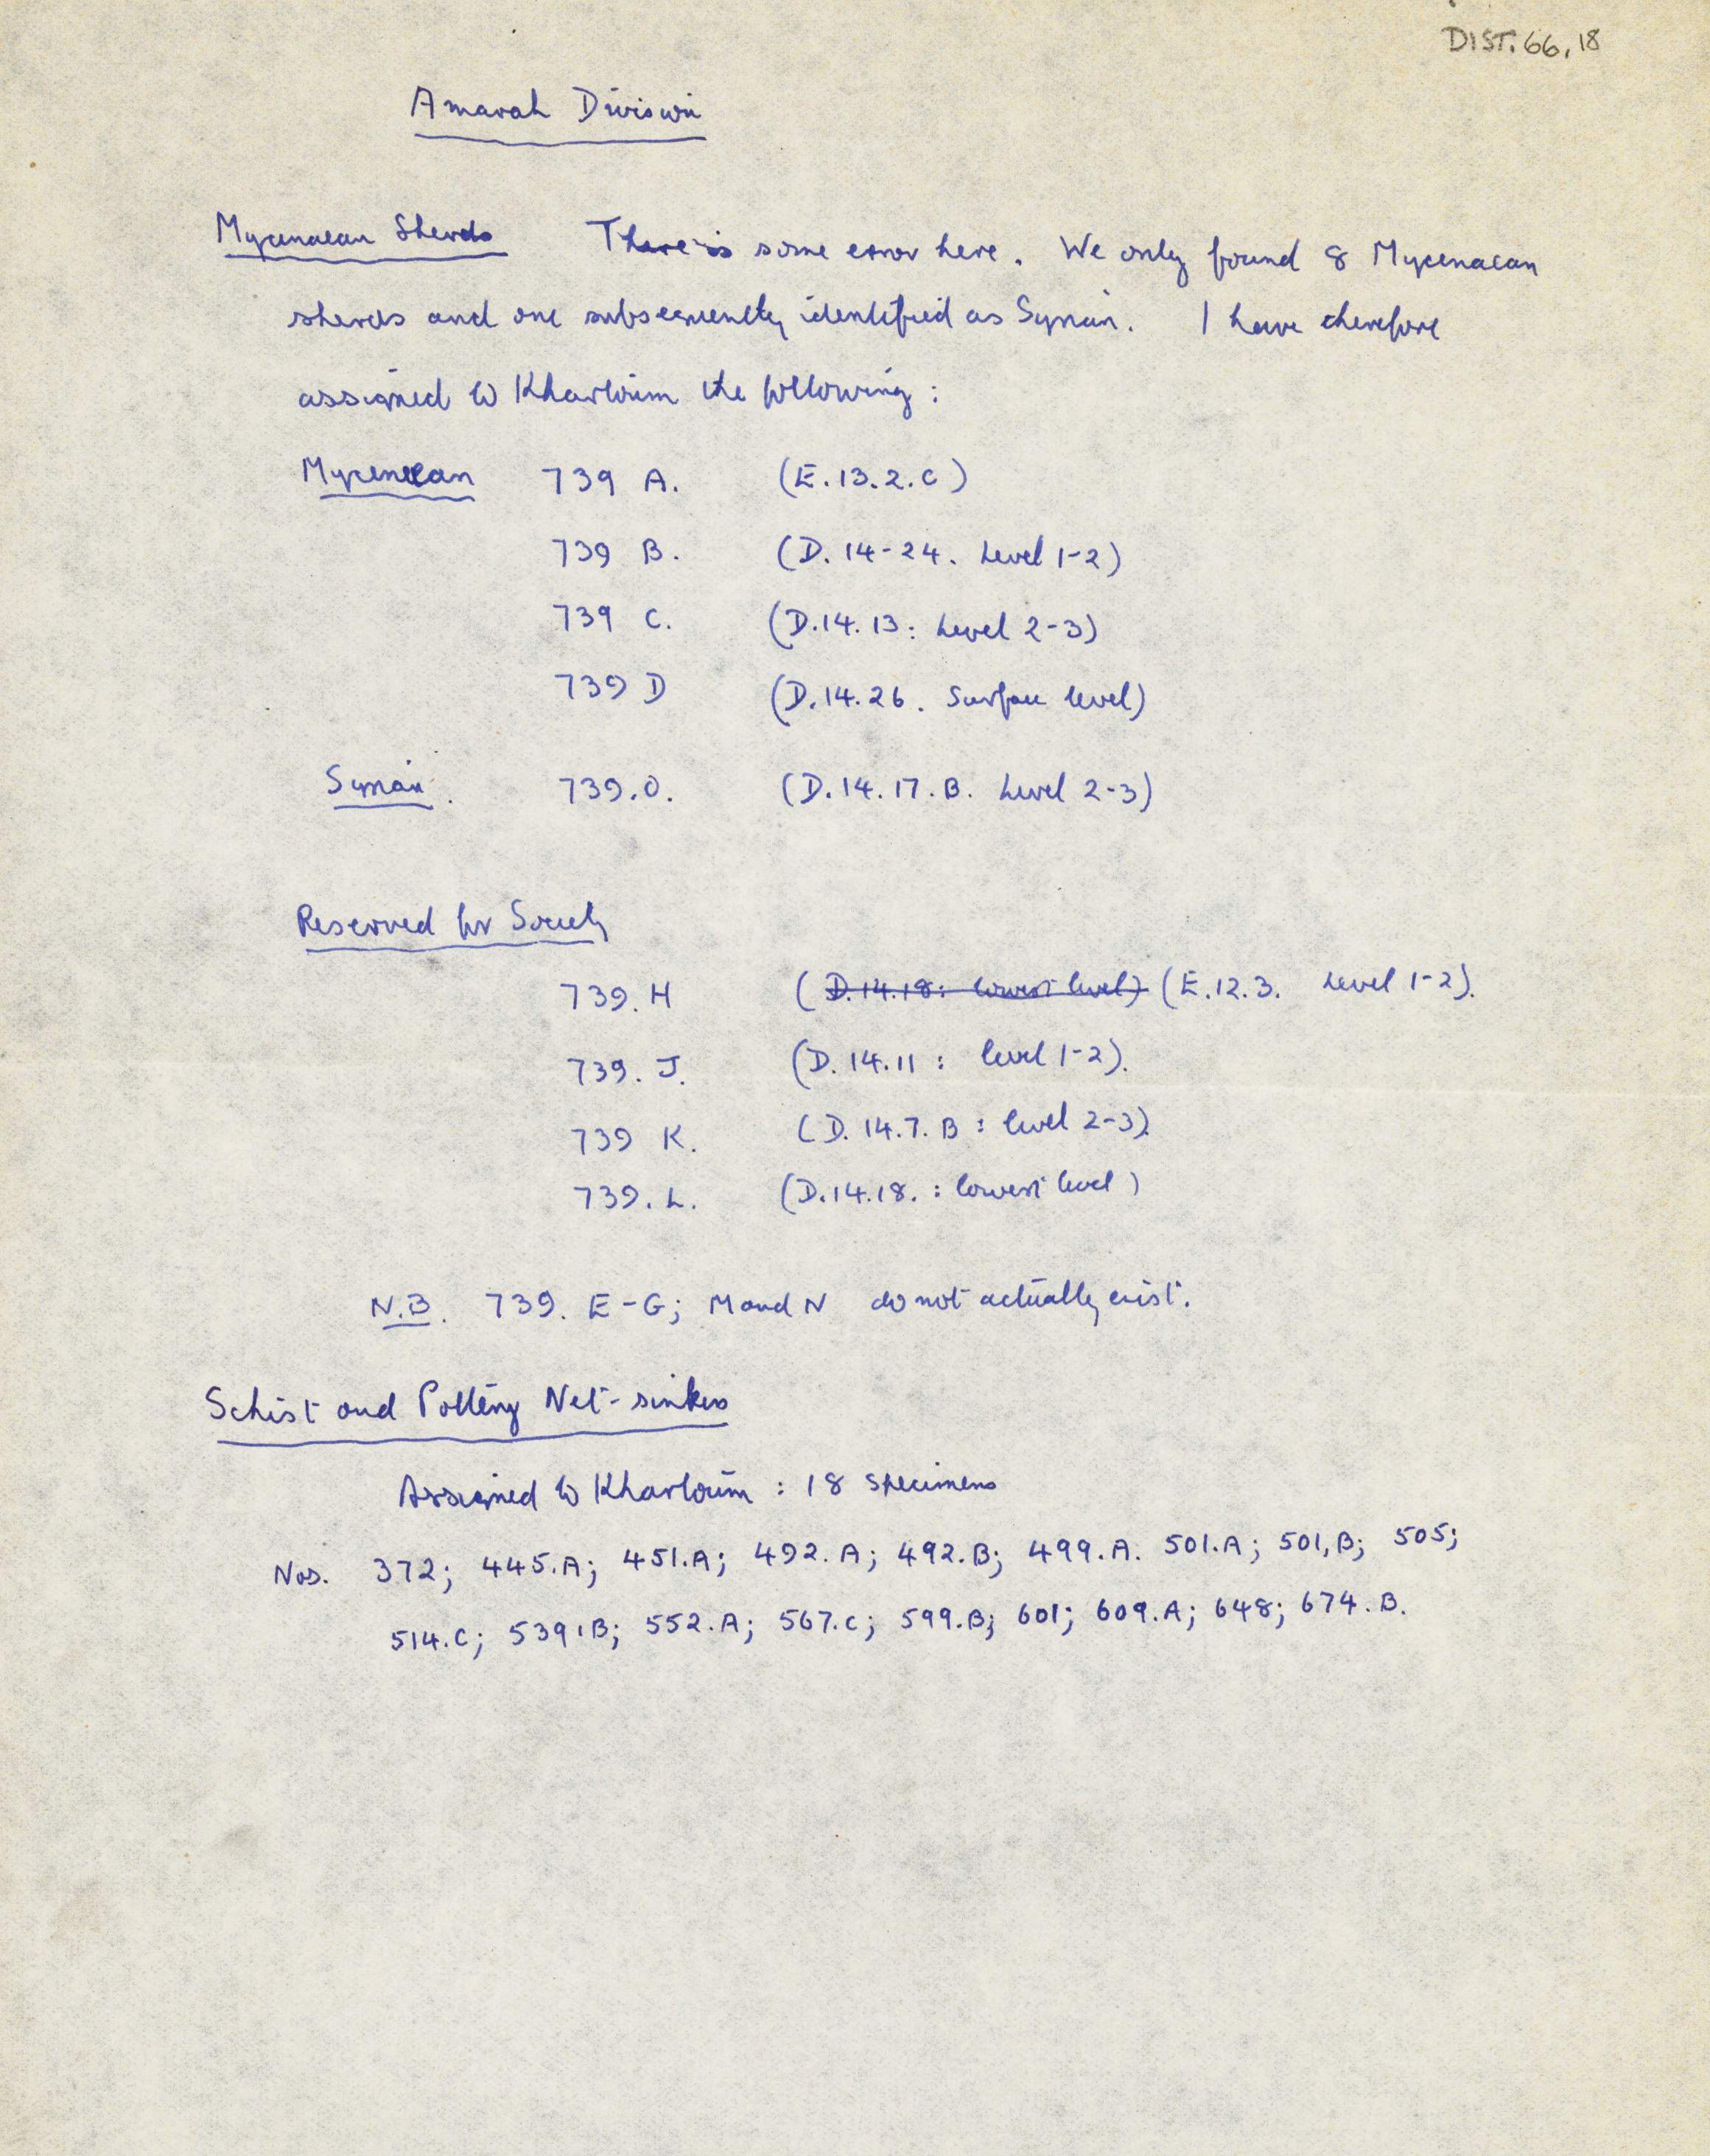 DIST. 66, 18
Amarah Division
Mycenaean Sherds There is some error here. We only found 8 Mycenaean
sherds and one subsequently identified as Syrian. I have therefore
assigned to Khartoum the following:
Mycenaean 739 A. (E.13.2.C)
739 B. (D. 14-24. Level 1-2)
739 C. (D.14.13: Level 2-3)
739 D (D.14.26. Surface level)
Syrian. 739.O. (D.14.17.B. Level 2-3)
Reserved for Society
739.H (D.14.18: lowest level) (E.12.3. Level 1-2).
739. J. (D.14.11: level 1-2).
739 K. (D. 14.7. B: level 2-3).
739. L. (D.14.18.: lowest level)
N.B. 739. E-G; M and N do not actually exist.
Schist and Pottery Net-sinkers
Assigned to Khartoum: 18 specimens
Nos. 372; 445.A; 451.A; 492.A; 492.B; 499.A. 501.A; 501,B; 505;
514.C; 539.B; 552.A; 567.C; 599.B; 601; 609.A; 648; 674.B.